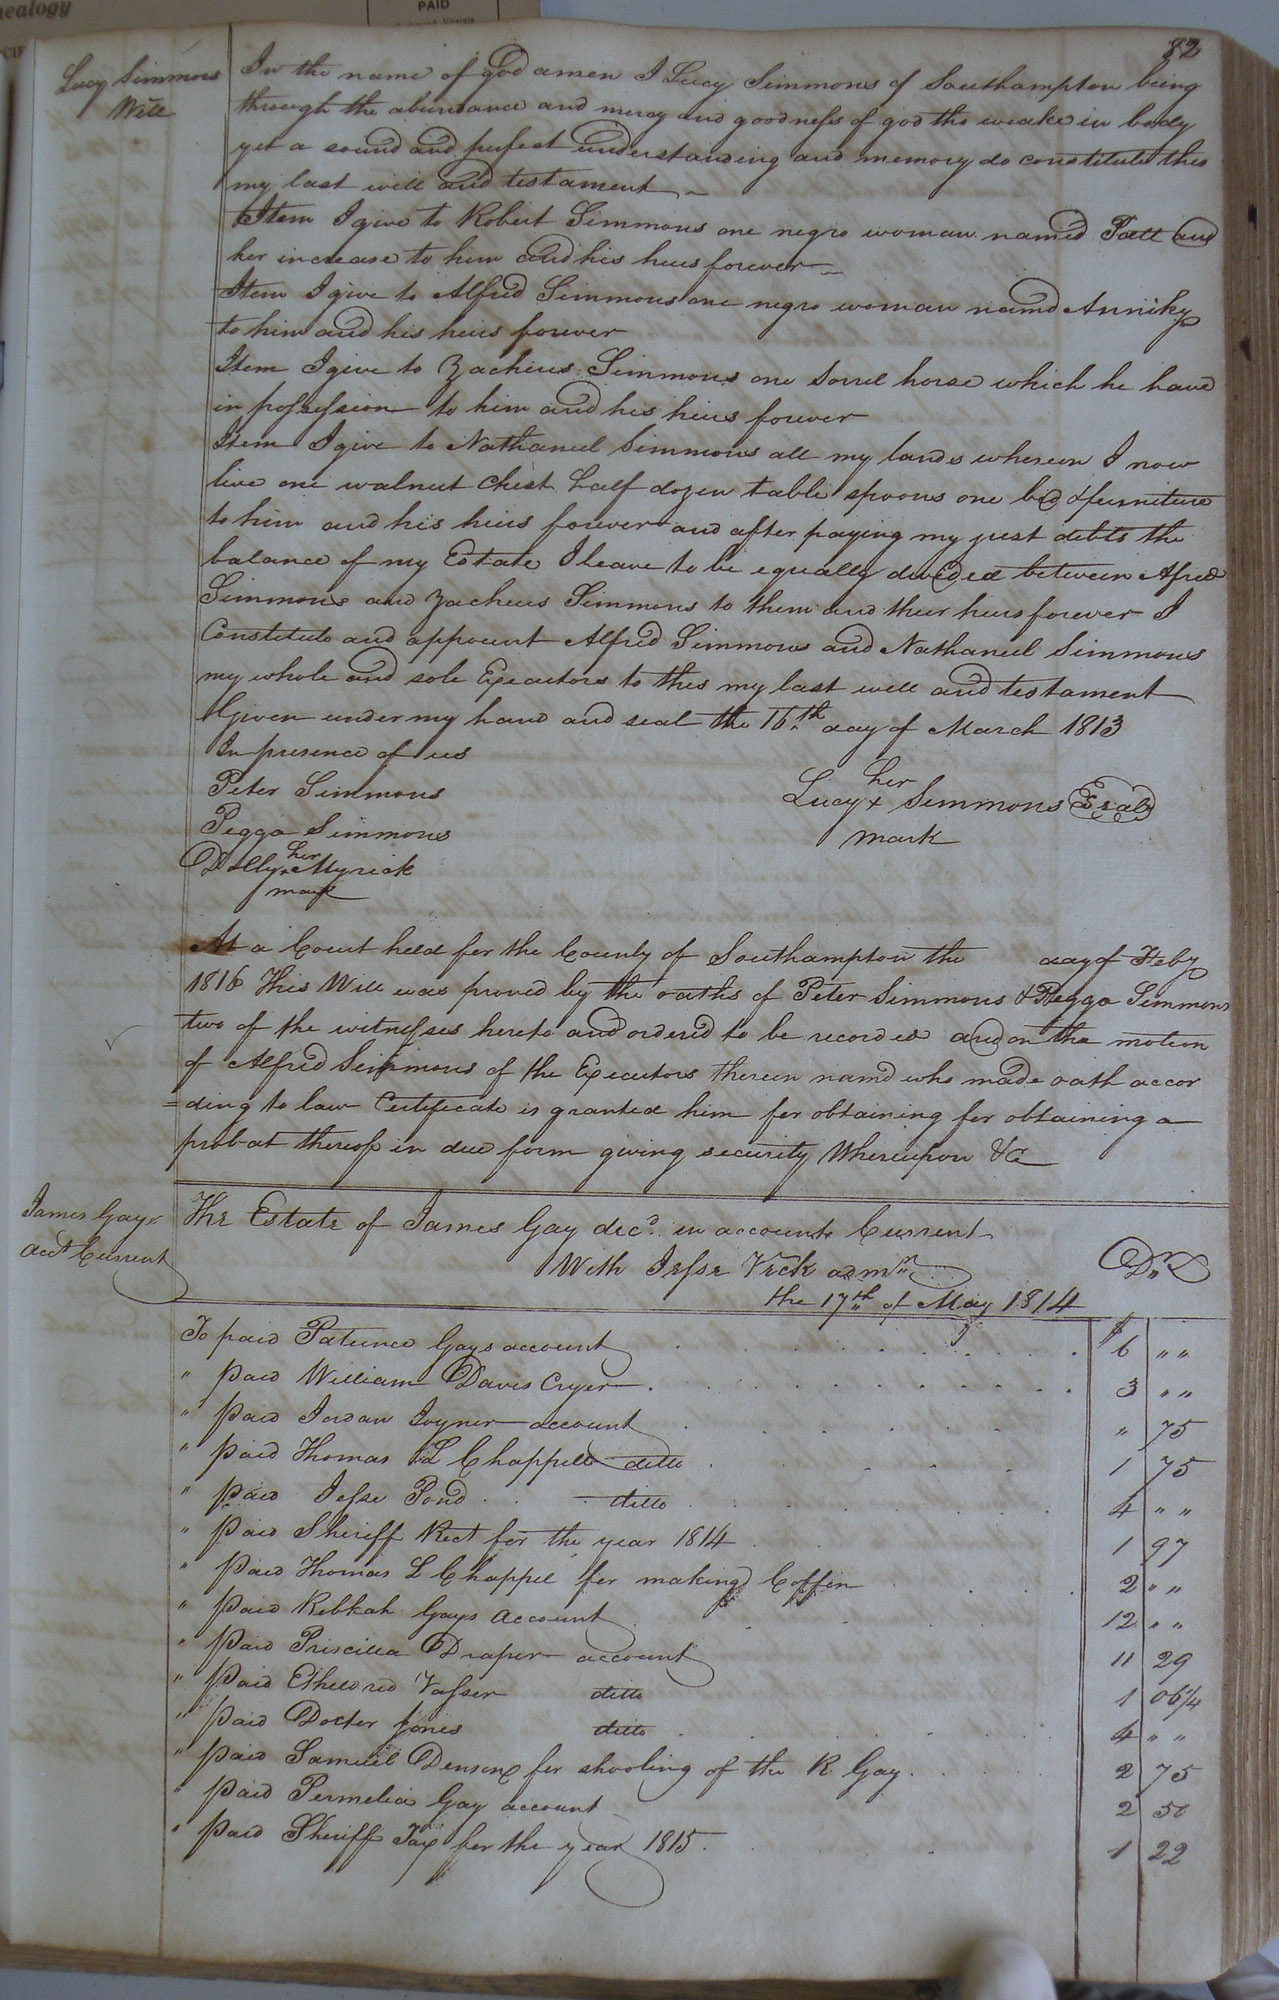 nealogy
PAID
82
Lucy Simmons
Will
In the name of god amen I Lucy Simmons of Southampton being
through the abundance and mercy and goodness of god tho weake in body
yet a sound and perfect understanding and memory do constitute this
my last will and testament
Item I give to Robert Simmons one negro woman named Patt and
her increase to him and his heirs forever
Item I give to Alfred Simmons one negro woman namd Anniky
to him and his heirs forever
Item I give to Zacheus Simmons one Sorrel horse which he have
in possession to him and his heirs forever
Item I give to Nathaniel Simmons all my lands whereon I now
live one walnut Chest half dozen table spoons one bed & furniture
to him and his heirs forever and after paying my just debts the
balance of my Estate I leave to be equally divided between Afred
Simmons and Zacheus Simmons to them and their heirs forever I
Constitute and appoint Alfred Simmons and Nathaniel Simmons
my whole and sole Executors to this my last will and testament
Given under my hand and seal the 16th day of March 1813
In presence of us
Peter Simmons
Peggo Simmons
Dolly her Myrick
mark
her
Lucy x Simmons Seal
mark
At a Court held for the County of Southampton the day of Feby
1816 This Will was proved by the oaths of Peter Simmons & Peggo Simmons
two of the witnesses hereto and ordered to be recorded and on the motion
of Alfred Simmons of the Executors therein namd who made oath accor
=ding to law Certificate is granted him for obtaining for obtaining a
probat thereof in due form giving security Whereupon &C
James Gay
acct Current
The Estate of James Gay decd in account Current
With Jesse Vick admr
the 17th of May 1814
Dr
$
To paid Patience Gays account 6 " "
" paid William Davis Cryer 3 " "
" paid Jordan Joyner account " 75
" paid Thomas L Chappell ditto 1 75
" paid Jesse Pond ditto 4 " "
" paid Sheriff Rect for the year 1814 1 97
" paid Thomas L Chappel for making Coffin 2 " "
" paid Rebkah Gays account 12 " "
" paid Priscilla Draper account 11 29
" paid Etheldred Vasser ditto 1 06 1/4
" paid Docter Jones ditto 4 " "
" paid Samuel Denson for shooling of the R Gay 2 75
" paid Permelia Gay account 2 50
" paid Sheriff Tax for the year 1815 1 22